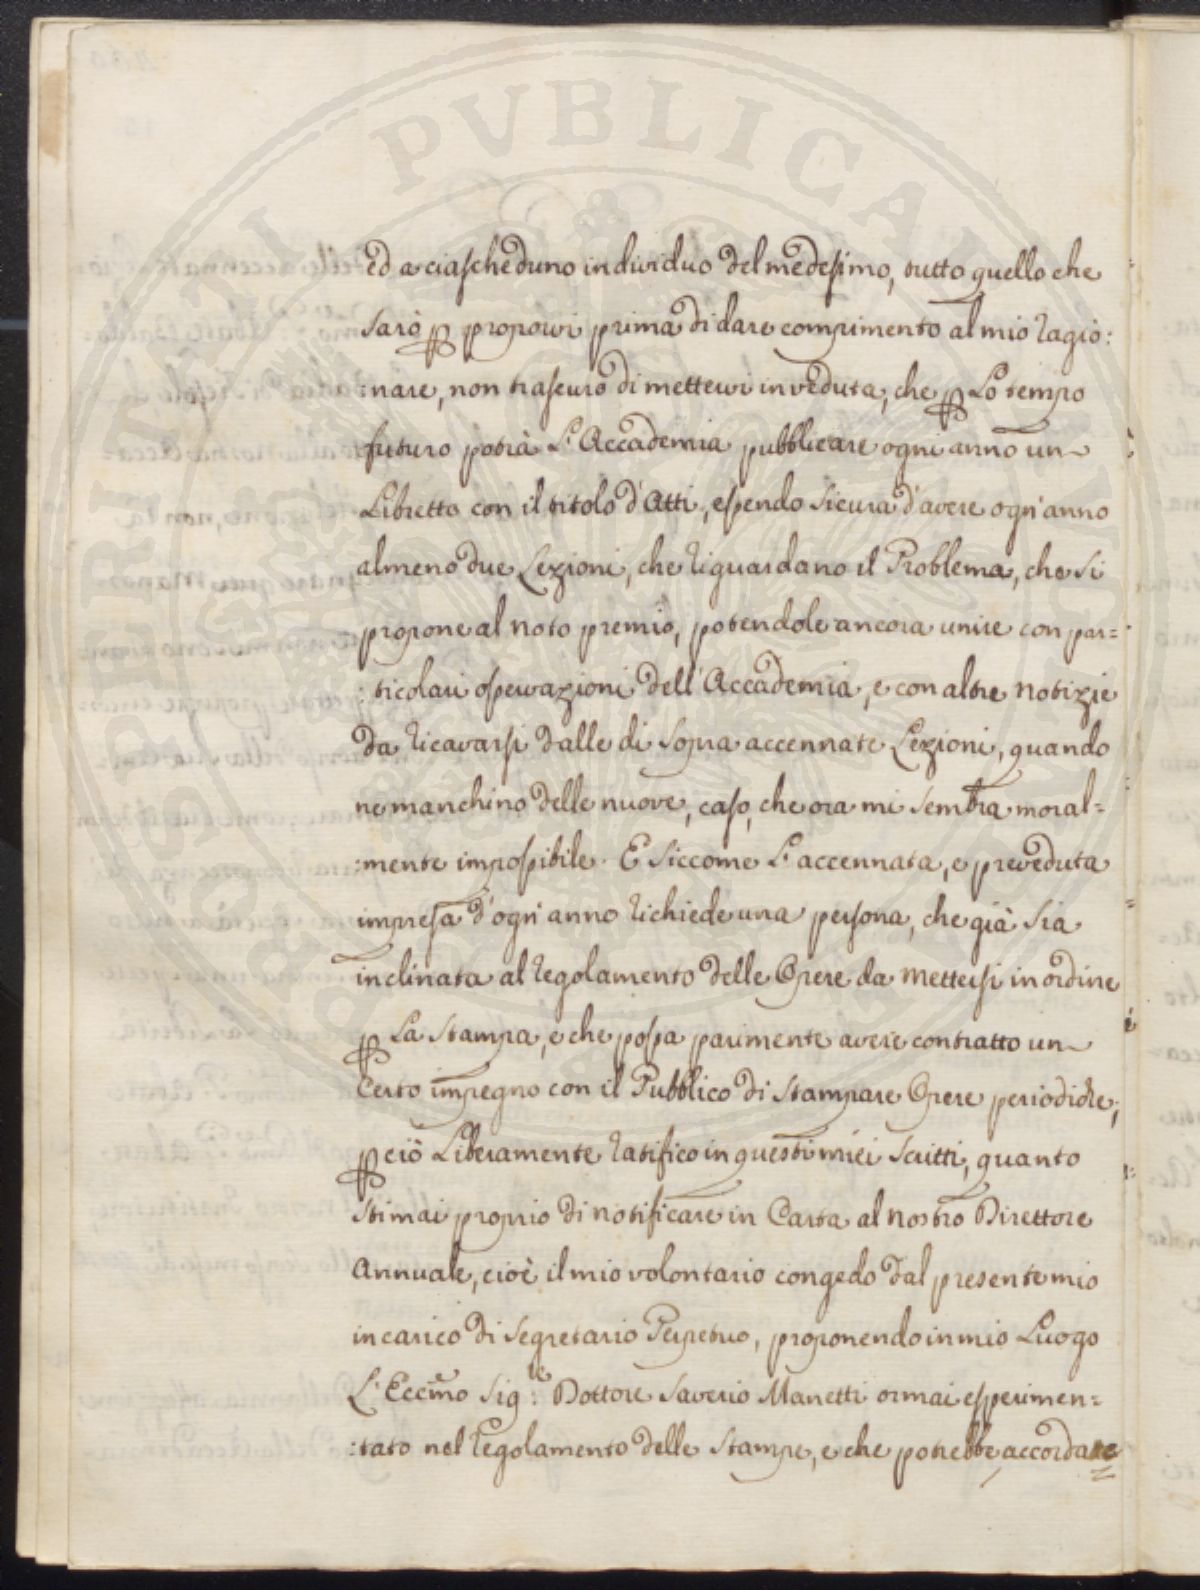 ed a ciascheduno individuo del medesimo, tutto quello che
sarò p proporvi prima di dare compimento al mio ragio:
:nare, non trascuro di mettervi in veduta, che p Lo tempo
futuro potrà L'Accademia pubblicare ogni anno un
Libretto con il titolo d'Atti, essendo sicura d'avere ogn'anno
almeno due Lezioni, che riguardano il Problema, che si
propone al noto premio, potendole ancora unire con par=
:ticolari osservazioni dell'Accademia, e con altre notizie
da ricavarsi dalle di sopra accennate Lezioni, quando
ne manchino delle nuove, caso, che ora mi sembra moral=
:mente impossibile. E siccome L'accennata, e preveduta
impresa d'ogn'anno richiede una persona, che già sia
inclinata al regolamento delle Opere da mettersi in ordine
p La stampa, e che possa parimente avere contratto un
certo impegno con il Pubblico di stampare Opere periodiche;
pciò Liberamente ratifico in questi miei scritti, quanto
stimai proprio di notificare in Carta al nostro Direttore
Annuale, cioè il mio volontario congedo dal presente mio
incarico di Segretario Perpetuo, proponendo in mio Luogo
L'Eccmo Sig:re Dottore Saverio Manetti ormai esperimen=
:tato nel regolamento delle stampe, e che potrebbe accordare
PERITATI PVBLICAE